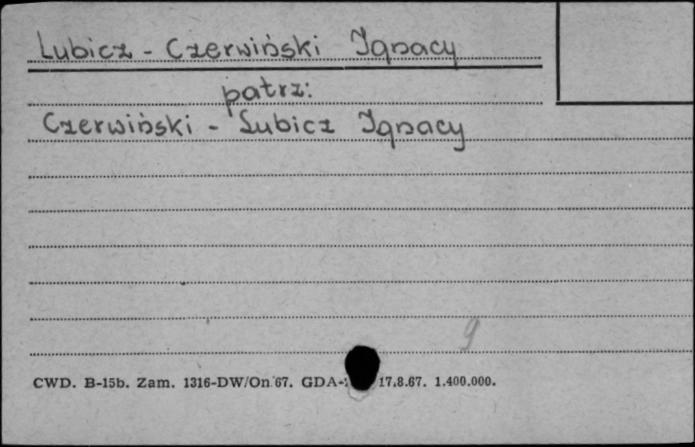 Lubicz - Czerwiński Ignacy
patrz:
Czerwiński - Lubicz Ignacy
9
CWD. B-15b. Zam. 1316-DW/On 67. GDA- 17.8.67. 1.400.000.